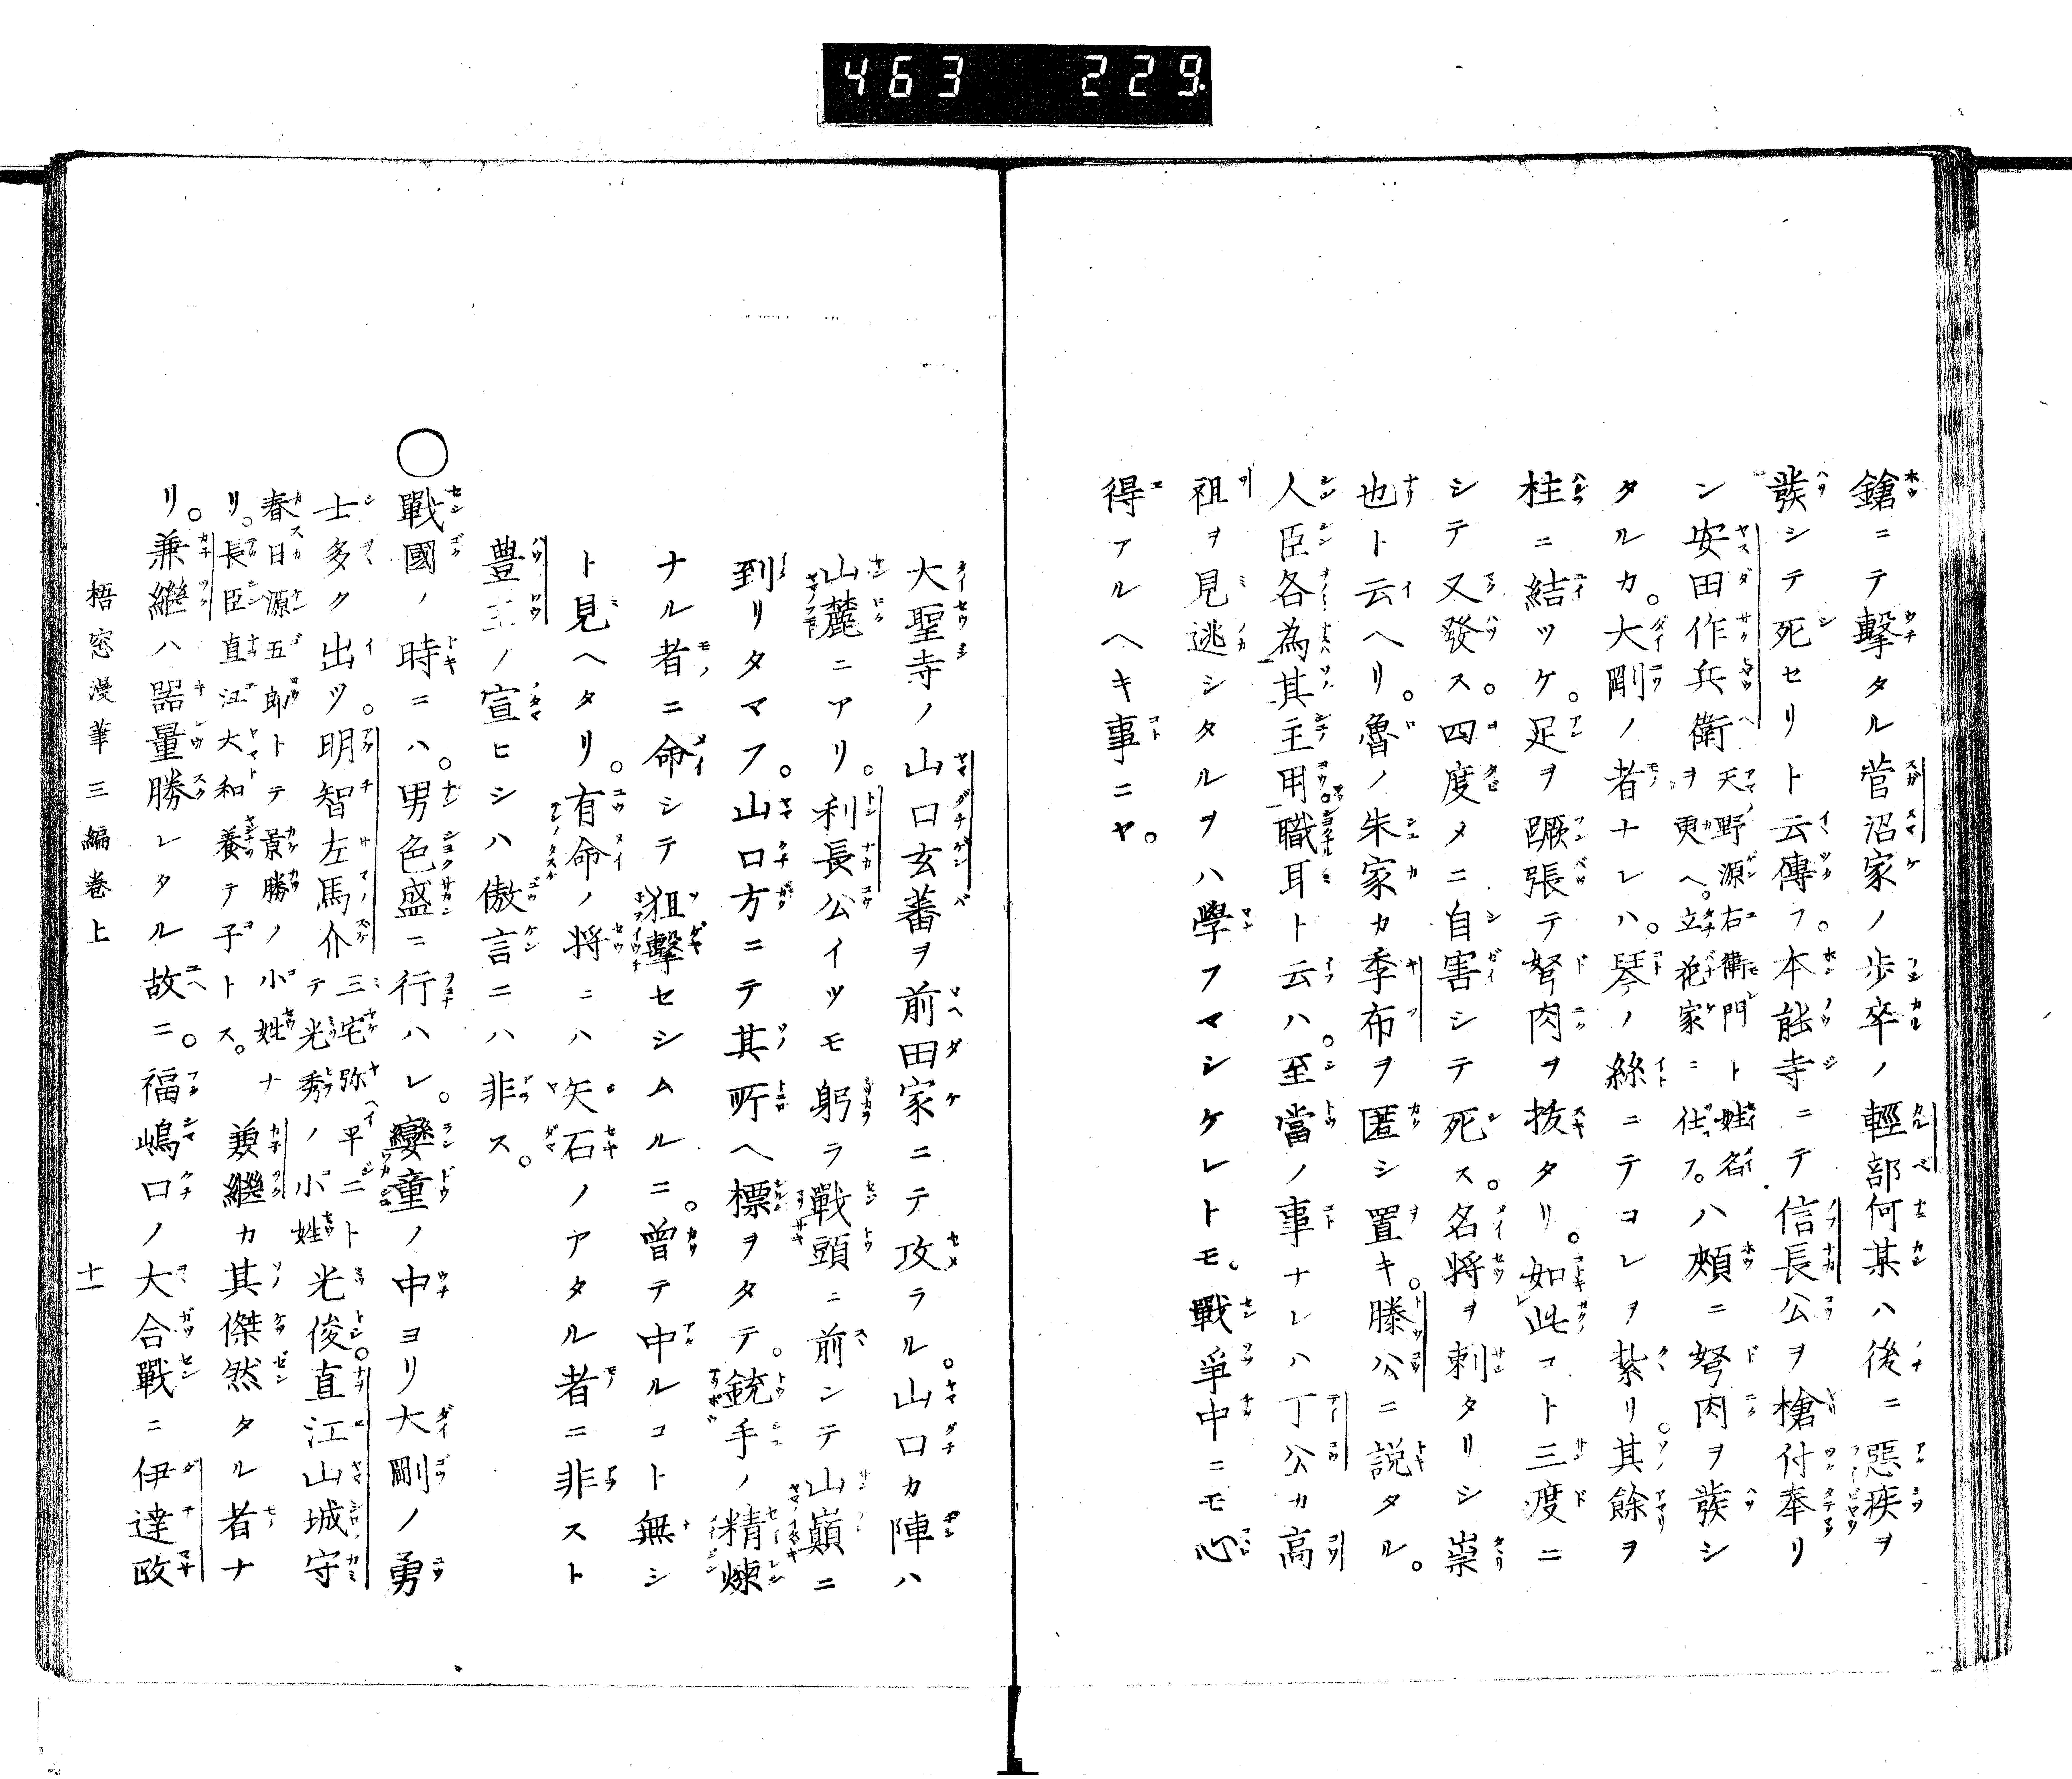 463 229
鎗ニテ擊タル菅沼家ノ歩卒ノ輕部何某ハ後ニ惡疾ヲ
發シテ死セリト云傳フ。本能寺ニテ信長公ヲ槍付奉リ
ン安田作兵衛天野源右衛門ト姓名ヲ更ヘ。立花家ニ仕フ。ハ頰ニ弩肉ヲ發シ
タルカ。大剛ノ者ナレハ。琴ノ絲ニテコレヲ紮リ其餘ヲ
柱ニ結ツケ。足ヲ蹶張テ弩肉ヲ拔タリ。如此コト三度ニ
シテ又發ス。四度メニ自害シテ死ス。名将ヲ刺タリシ祟
也ト云ヘリ。魯ノ朱家カ季布ヲ匿シ置キ。滕公ニ説タル。
人臣各為其主用職耳ト云ハ。至當ノ事ナレハ丁公カ高
祖ヲ見逃シタルヲハ學フマシケレトモ。戰爭中ニモ心
得アルヘキ事ニヤ。
大聖寺ノ山口玄蕃ヲ前田家ニテ攻ラル。山口カ陣ハ
山麓ニアリ。利長公イツモ躬ラ戰頭ニ前ンテ山巓ニ
到リタマフ。山口方ニテ其所ヘ標ヲタテ。銃手ノ精煉
ナル者ニ命シテ狙擊セシムルニ。曾テ中ルコト無シ
ト見ヘタリ。有命ノ将ニハ矢石ノアタル者ニ非スト
豊王ノ宣ヒシハ傲言ニハ非ス。
○戰國ノ時ニハ。男色盛ニ行ハレ。孌童ノ中ヨリ大剛ノ勇
士多ク出ツ。明智左馬介三宅弥平ニトテ光秀ノ小姓光俊。直江山城守
春日源五郎トテ景勝ノ小姓ナリ。長臣直江大和養テ子トス。兼繼カ其傑然タル者ナ
リ。兼繼ハ器量勝レタル故ニ。福嶋口ノ大合戰ニ伊達政
梧窓漫筆三編巻上 十一